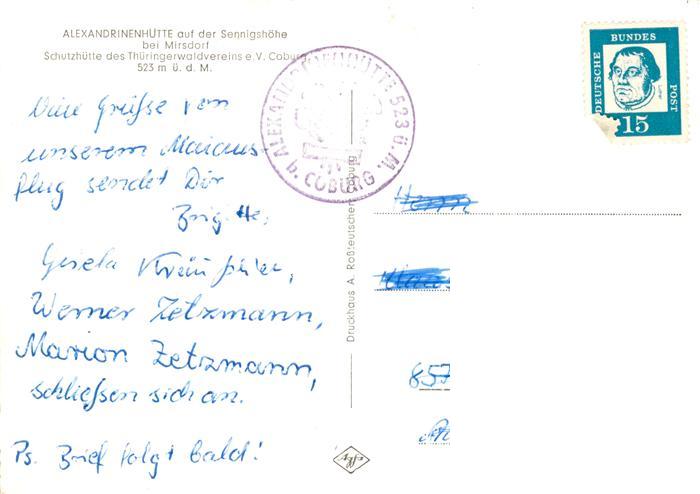 ALEXANDRINENHÜTTE auf der Sennigshöhe
bei Mirsdorf
Schutzhütte des Thüringerwaldvereins e.V. Coburg
523 m ü. d. M.
Viele Grüße von
unserem Maiaus-
flug sendet Dir
Brigitte,
Gisela
Werner Zetzmann,
Marion Zetzmann,
schließen sich an.
Ps. Brief folgt bald!
ALEXANDRINENHÜTTE 523 ü.M.
b. COBURG
Druckhaus A. Roßteutscher, Coburg
Agfa
DEUTSCHE BUNDES POST
15
Herrn
857